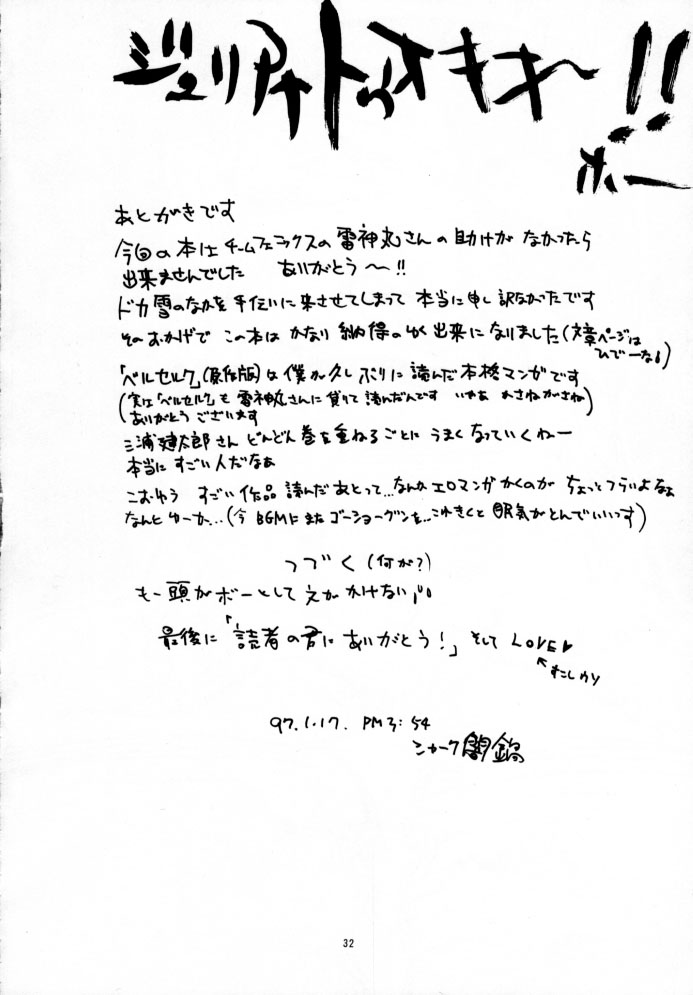 ジュリアナトゥオキキ〜!!
ホー
あとがきです
今回の本はチームフェニックスの雷神丸さんの助けがなかったら
出来ませんでした ありがとう〜!!
ドカ雪のなかを手伝いに来させてしまって本当に申し訳なかったです
そのおかげでこの本はかなり納得のゆく出来になりました(文章ページは
ひでーなぁ)
「ベルセルク」(原作版)は僕が久しぶりに読んだ本格マンガです
(実は「ベルセルク」も雷神丸さんに貸りて読んだんです いやぁ かさねがさね)
(ありがとうございます)
三浦建太郎さん どんどん巻を重ねるごとに うまくなっていくねー
本当にすごい人だなぁ
こおゆう すごい作品 読んだあとって...なんか エロマンガ かくのが ちょっとつらいよなぁ
なんとゆーか...(今 BGMに またゴーショーグンを...これきくと 眠気がとんでいいっす)
つづく(何が?)
もー頭がボーとして えが かけない
最後に「読者の君にありがとう!」そして LOVE♥
97.1.17. PM3:54
シャーク闇鍋
32